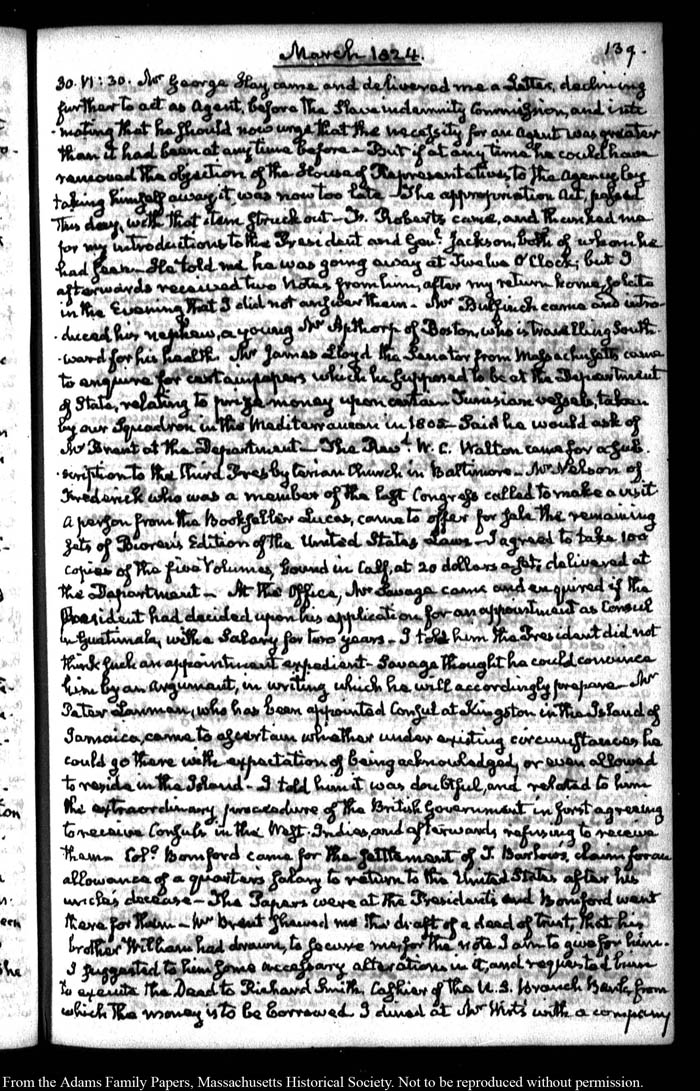 March 1824.
139.
30. VI: 30. Mr George Hay came and delivered me a Letter, declining
further to act as Agent, before the Slave indemnity Commission, and inti-
-mating that he should now urge that the necessity for an Agent was greater
than it had been at any time before— But if at any time he could have
removed the objection of the House of Representatives, to the Agency by
taking himself away, it was now too late— The appropriation Act, passed
this day, with that item struck out— Roberts came, and thanked me
for my introductions to the President and Genl. Jackson, both of whom he
had seen— He told me he was going away at Twelve O'Clock; but I
afterwards received two Notes from him, after my return home, so late
in the Evening that I did not answer them— Mr Bulfinch came and intro-
-duced his nephew, a young Mr Apthorp of Boston, who is travelling South-
-ward for his health. Mr James Lloyd the Senator from Massachusetts came
to enquire for certain papers which he supposed to be at the Department
of State, relating to prize money upon certain Tunisian vessels, taken
by our Squadron in the Mediterranean in 1805— Said he would ask of
Mr Brent at the Department— The Revd. W. C. Walton came for a sub-
-scription to the third Presbyterian Church in Baltimore— Mr Nelson of
Frederick who was a member of the last Congress called to make a visit
A person from the Bookseller Lucas, came to offer for sale the remaining
sets of Bioren's Edition of the United States Laws— I agreed to take 100
copies of the five Volumes, bound in Calf, at 20 dollars a set; delivered at
the Department— At the Office, Mr Savage came and enquired if the
President had decided upon his application for an appointment as Consul
in Guatimala, with a Salary for two years— I told him the President did not
think such an appointment expedient— Savage thought he could convince
him by an Argument, in writing which he will accordingly prepare— Mr
Peter Lanman, who has been appointed Consul at Kingston in the Island of
Jamaica, came to ascertain whether under existing circumstances he
could go there with expectation of being acknowledged, or even allowed
to reside in the Island— I told him it was doubtful, and related to him
the extraordinary procedure of the British Government in first agreeing
to receive Consuls in the West-Indies, and afterwards refusing to receive
them— Coll. Bomford came for the settlement of T. Barlow's, claim for an
allowance of a quarter's salary to return to the United States after his
uncle's decease— The Papers were at the President's and Bomford went
there for them— Mr Brent shewed me the draft of a deed of trust, that his
brother William had drawn, to secure me, for the note I am to give for him.
I suggested to him some necessary alterations in it, and requested him
to execute the Deed to Richard Smith, Cashier of the U.S. Branch Bank, from
which the money is to be borrowed. I dined at Mr Wirt's with a company
From the Adams Family Papers, Massachusetts Historical Society. Not to be reproduced without permission.